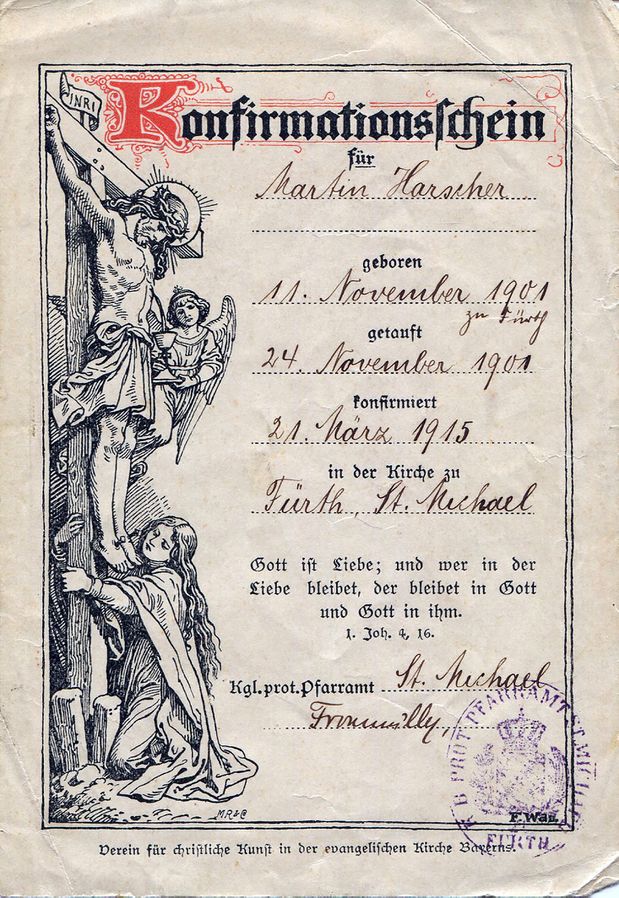 INRI
Konfirmationsschein
für
Martin Harscher
geboren
11. November 1901
zu Fürth
getauft
24. November 1901
konfirmiert
21. März 1915
in der Kirche zu
Fürth, St. Michael
Gott ist Liebe; und wer in der
Liebe bleibet, der bleibet in Gott
und Gott in ihm.
1. Joh. 4, 16.
Kgl. prot. Pfarramt St. Michael
Fronmüller,
K. B. PROT. PFARRAMT ST. MICHAEL
FÜRTH
M.R.&C
F. Wan.
Verein für christliche Kunst in der evangelischen Kirche Bayerns.